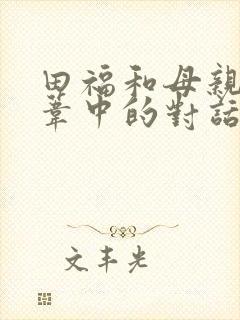 田福和母親
葦中的對話
文丰光